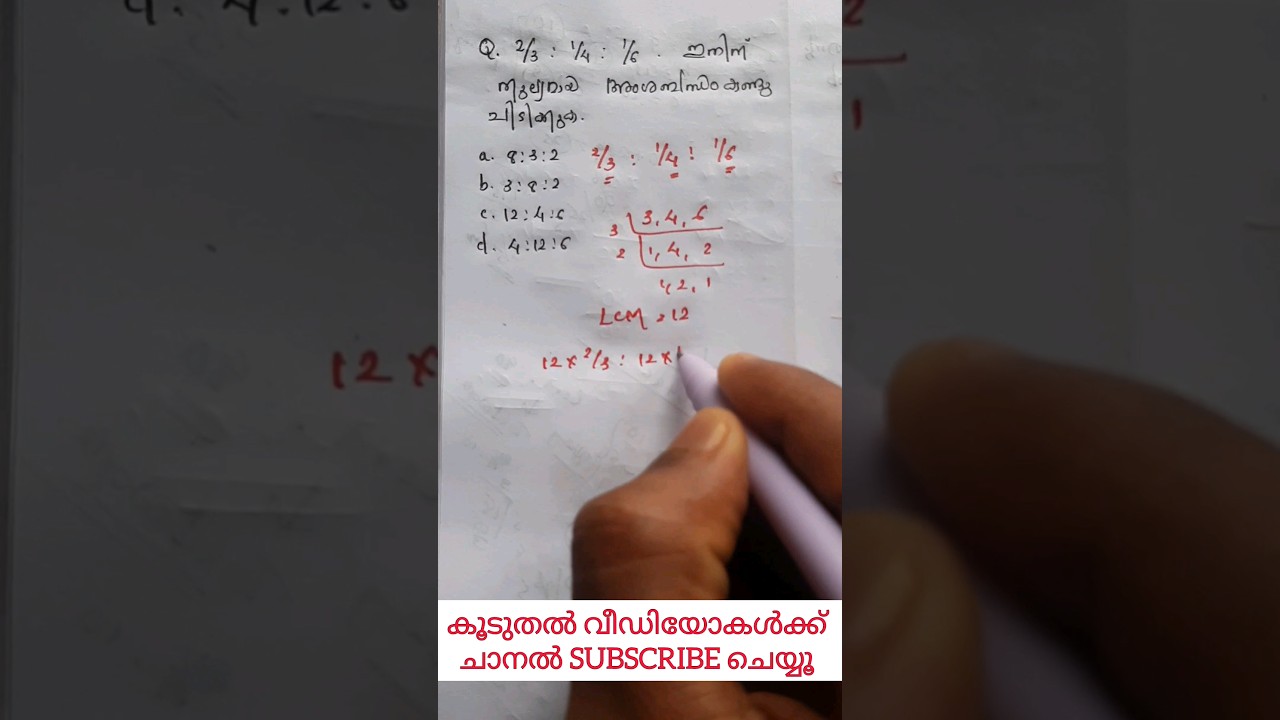 Q. 2/3 : 1/4 : 1/6 . ഇതിന്
തുല്യമായ അംശബന്ധം കണ്ടു
പിടിക്കുക.
a. 8:3:2
b. 3:8:2
c. 12:4:6
d. 4:12:6
2/3 : 1/4 : 1/6
3 3, 4, 6
2 1, 4, 2
1, 2, 1
LCM = 12
12 x 2/3 : 12 x 1
കൂടുതൽ വീഡിയോകൾക്ക്
ചാനൽ SUBSCRIBE ചെയ്യൂ